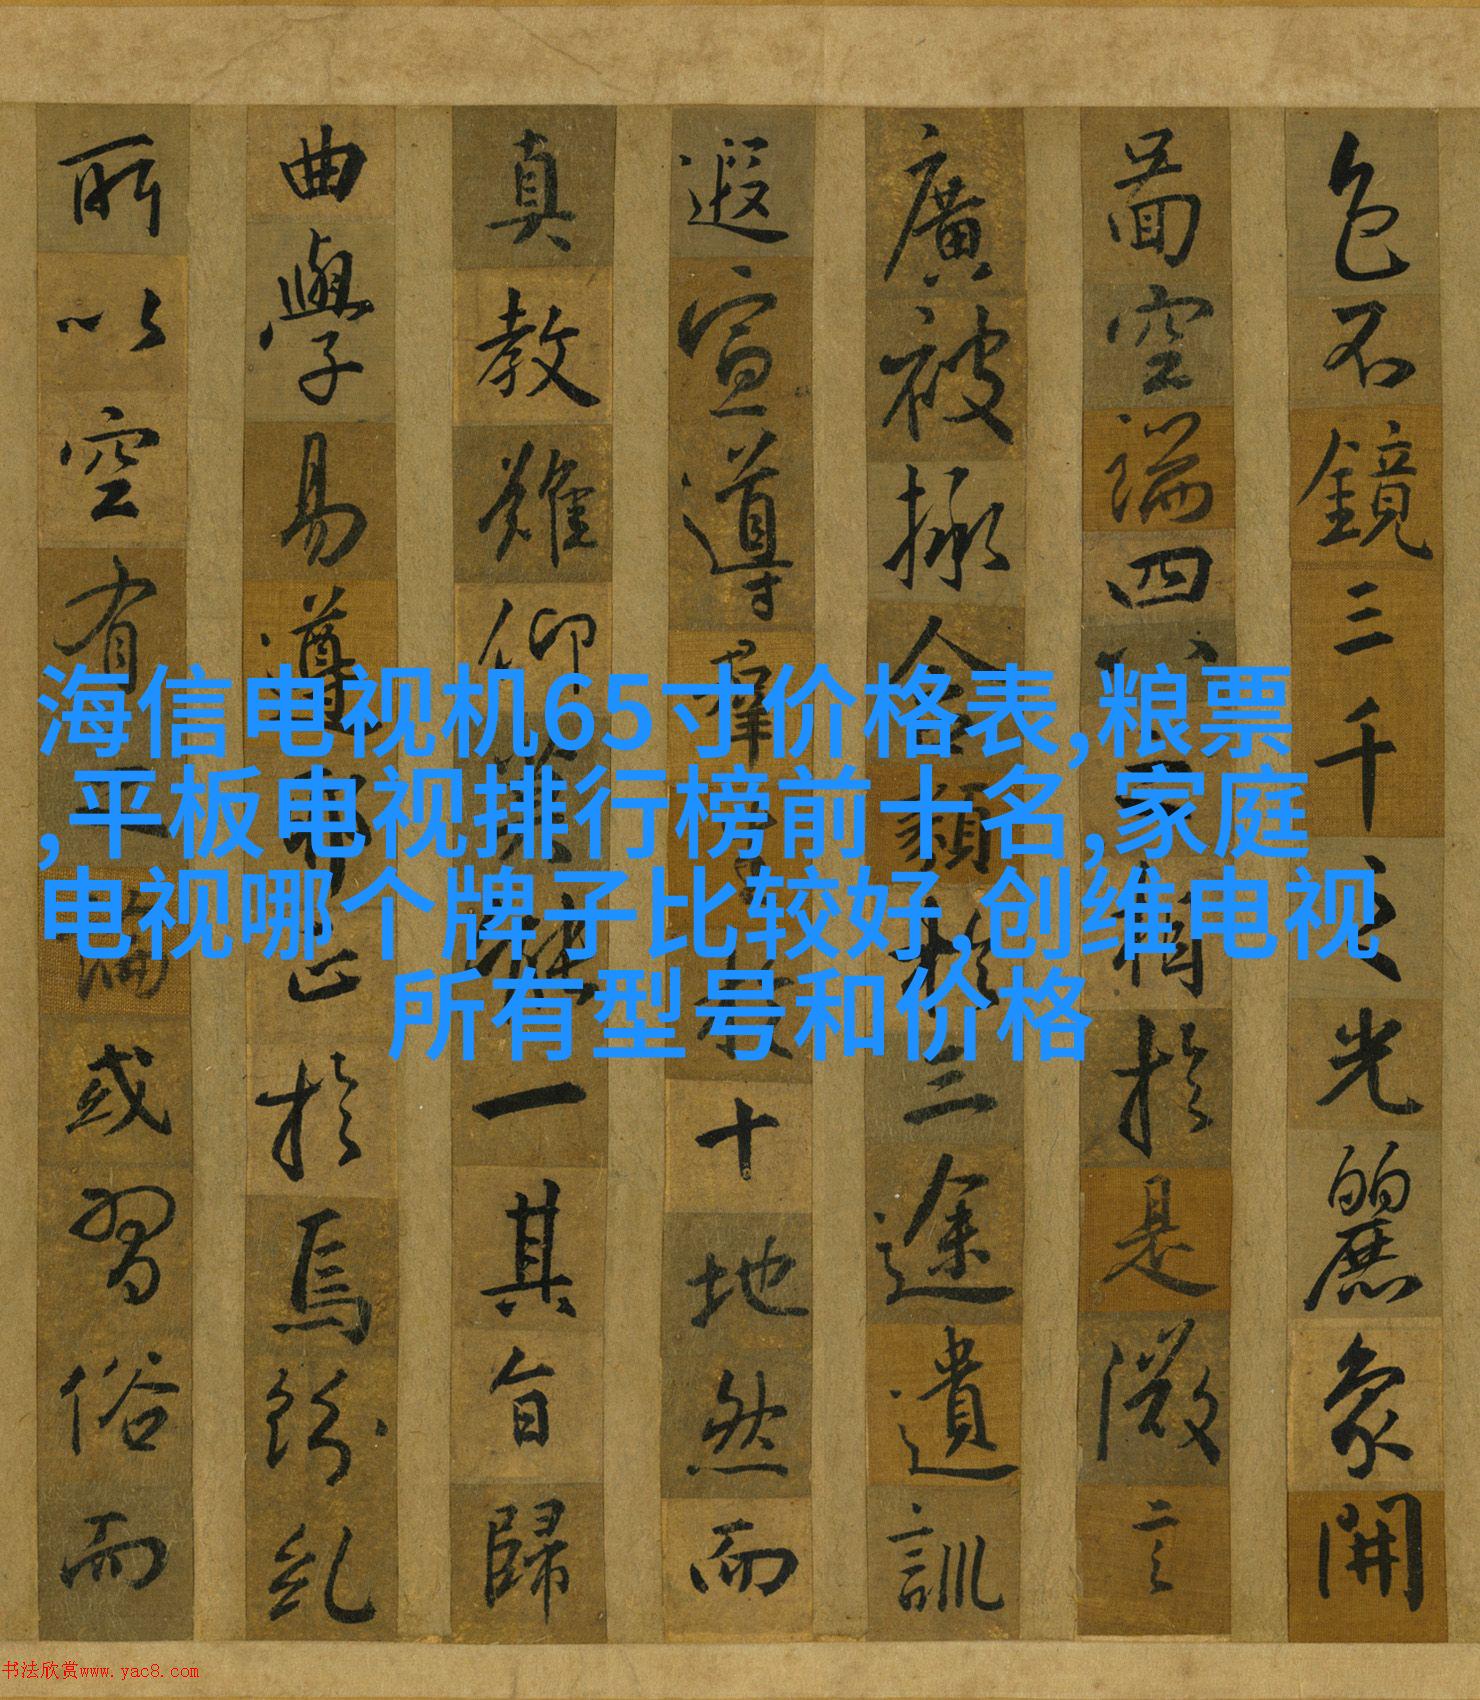 海信电视机65寸价格表,粮票
,平板电视排行榜前十名,家庭
电视哪个牌子比较好,创维电视
所有型号和价格
色不鏡三千之光麗象開
圖空端四八之相於是微言
廣被拯含類於三途遺訓
遐宣導羣生於十地然而
真教難仰莫能一其旨歸
曲學易遵邪正於焉紛糺
所以空有之論或習俗而
书法欣赏www.yac8.com